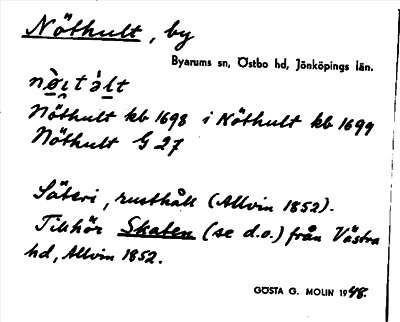 Nöthult, by
Byarums sn, Östbo hd, Jönköpings län.
Nöthult kb 1698 i Nöthult kb 1699
Nöthult G 27
Säteri, rusthåll (Allvin 1852).
Tillhör Skaten (se d.o.) från Västra
hd, Allvin 1852.
GÖSTA G. MOLIN 1948.